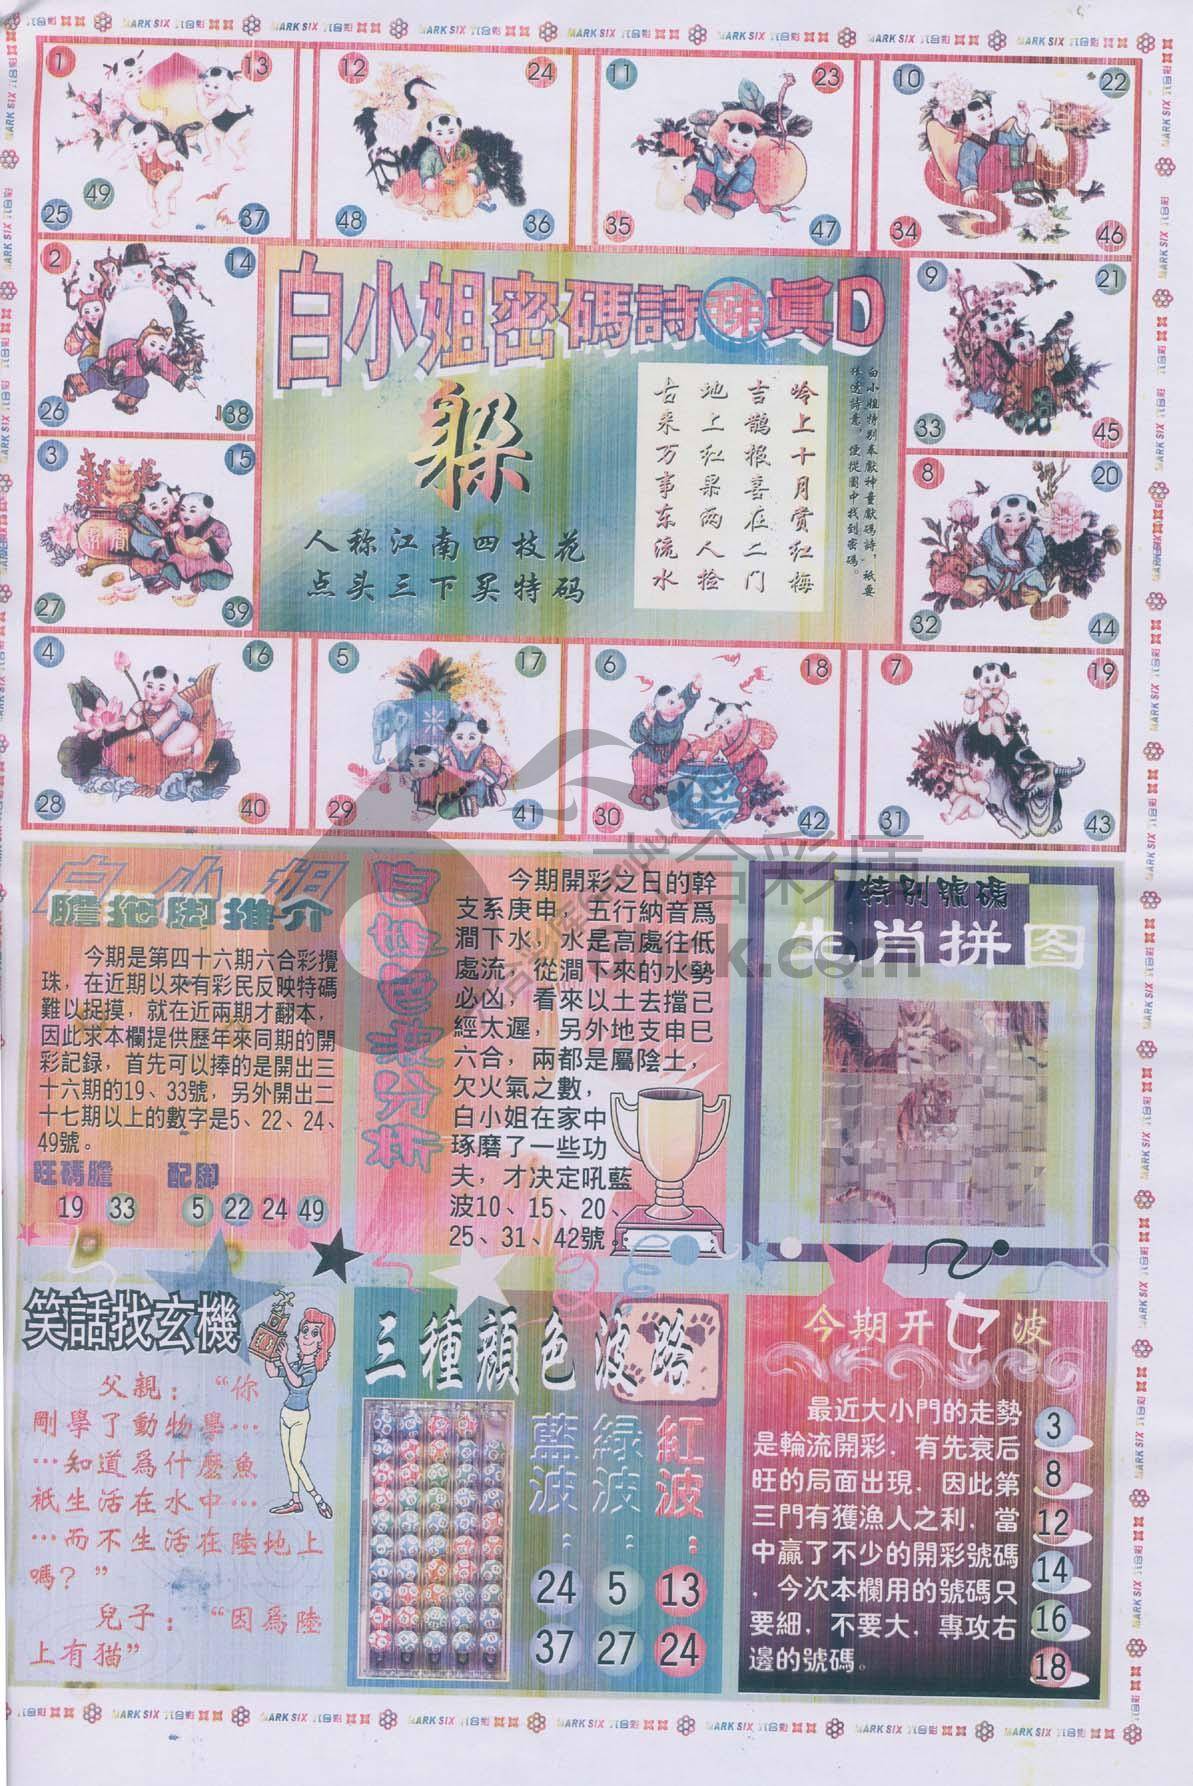 MARK SIX 六合彩
1 13 25 37 49
12 24 36 48
11 23 35 47
10 22 34 46
2 14 26 38
9 21 33 45
3 15 27 39
8 20 32 44
4 16 28 40
5 17 29 41
6 18 30 42
7 19 31 43
白小姐密碼詩
真D
躲
人称江南四枝花
点头三下买特码
白小姐特别奉獻神童獻碼詩,祇要
猜透詩意,便從圖中找到密碼。
岭上十月赏红梅
吉鹊报喜在二门
地上红果两人捡
古来万事东流水
白小姐
膽拖脚推介
今期是第四十六期六合彩攪
珠,在近期以來有彩民反映特碼
難以捉摸,就在近兩期才翻本,
因此求本欄提供歷年來同期的開
彩記録,首先可以捧的是開出三
十六期的19、33號,另外開出二
十七期以上的數字是5、22、24、
49號。
旺碼膽 配脚
19 33 5 22 24 49
今期開彩之日的幹
支系庚申,五行納音爲
澗下水,水是高處往低
處流,從澗下來的水勢
必凶,看來以土去擋已
經大遲,另外地支申巳
六合,兩都是屬陰土,
欠火氣之數,
白小姐在家中
琢磨了一些功
夫,才决定吼藍
波10、15、20、
25、31、42號。
特别號碼
生肖拼图
六合彩库
笑話找玄機
父親:“你
剛學了動物學…
…知道爲什麽魚
祇生活在水中…
…而不生活在陸地上
嗎?”
兒子:“因爲陸
上有猫”
三種顔色波路
藍波: 緑波: 紅波:
24 5 13
37 27 24
今期开七波
最近大小門的走勢
是輪流開彩,有先衰后
旺的局面出現,因此第
三門有獲漁人之利,當
中贏了不少的開彩號碼
,今次本欄用的號碼只
要細,不要大,專攻右
邊的號碼。
3
8
12
14
16
18